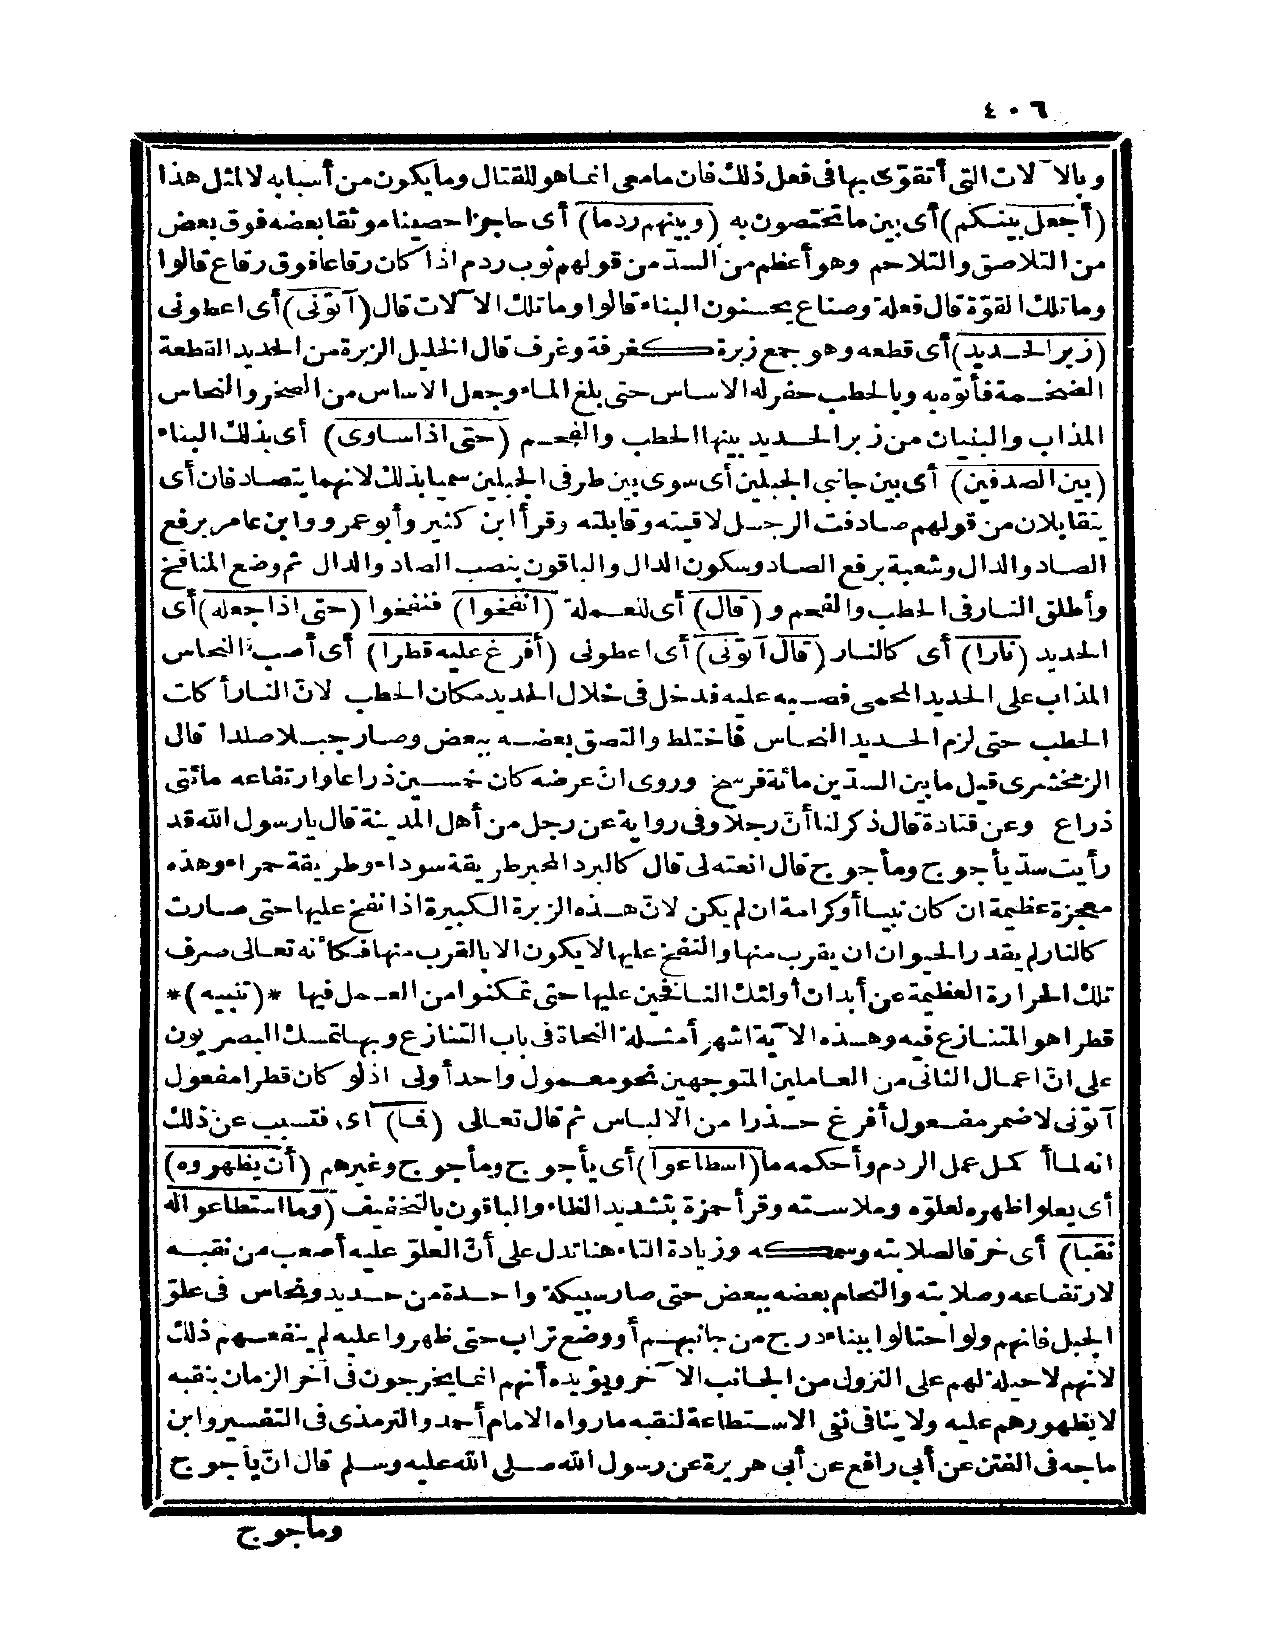 ٤٠٦
وبالآلات التى أتقوّى بها فى فعل ذلك فان ما معى انما هو للقتال وما يكون من أسبابه لا لمثل هذا
(أجعل بينكم) أى بين ما تختصون به (وبينهم ردما) أى حاجزا حصينا موثقا بعضه فوق بعض
من التلاصق والتلاحم وهو أعظم من السدّ من قولهم ثوب ردم اذا كان رقاعا فوق رقاع قالوا
وما تلك القوّة قال فعلة وصناع يحسنون البناء قالوا وما تلك الآلات قال (آتونى) أى اعطونى
(زبر الحديد) أى قطعه وهو جمع زبرة كغرفة وغرف قال الخليل الزبرة من الحديد القطعة
الضخمة فأتوه به وبالحطب حفر له الاساس حتى بلغ الماء وجعل الاساس من الصخر والنحاس
المذاب والبنيان من زبر الحديد بينها الحطب والفحم (حتى اذا ساوى) أى بذلك البناء
(بين الصدفين) أى بين جانبى الجبلين أى سوى بين طرفى الجبلين سميا بذلك لانهما يتصادفان أى
يتقابلان من قولهم صادفت الرجل لاقيته وقابلته وقرأ ابن كثير وأبو عمرو وابن عامر برفع
الصاد والدال وشعبة برفع الصاد وسكون الدال والباقون بنصب الصاد والدال ثم وضع المنافخ
وأطلق النار فى الحطب والفحم و (قال) أى للعملة (انفخوا) فنفخوا (حتى اذا جعله) أى
الحديد (نارا) أى كالنار (قال آتونى) أى اعطونى (أفرغ عليه قطرا) أى أصب النحاس
المذاب على الحديد المحمى فصبه عليه فدخل فى خلال الحديد مكان الحطب لانّ النار أكلت
الحطب حتى لزم الحديد النحاس فاختلط والتصق بعضه ببعض وصار جبلا صلدا قال
الزمخشرى قيل ما بين السدّين مائة فرسخ وروى انّ عرضه كان خمسين ذراعا وارتفاعه مائتى
ذراع وعن قتادة قال ذكر لنا أنّ رجلا وفى رواية عن رجل من أهل المدينة قال يا رسول الله قد
رأيت سدّ يأجوج ومأجوج قال انعته لى قال كالبرد المحبر طريقة سوداء وطريقة حمراء وهذه
معجزة عظيمة ان كان نبيا أو كرامة ان لم يكن لانّ هذه الزبرة الكبيرة اذا نفخ عليها حتى صارت
كالنار لم يقدر الحيوان ان يقرب منها والنفخ عليها لا يكون الا بالقرب منها فكأنه تعالى صرف
تلك الحرارة العظيمة عن أبدان أولئك النافخين عليها حتى تمكنوا من العمل فيها *(تنبيه)*
قطرا هو المتنازع فيه وهذه الآية اشهر أمثلة النحاة فى باب التنازع وبها تمسك البصريون
على انّ اعمال الثانى من العاملين المتوجهين نحو معمول واحد أولى اذ لو كان قطرا مفعول
آتونى لاضمر مفعول أفرغ حذرا من الالباس ثم قال تعالى (فما) أى فتسبب عن ذلك
انه لما أكمل عمل الردم وأحكمه ما (اسطاعوا) أى يأجوج ومأجوج وغيرهم (أن يظهروه)
أى يعلوا ظهره لعلوّه وملاسته وقرأ حمزة بتشديد الطاء والباقون بالتخفيف (وما استطاعوا له
نقبا) أى خرقا لصلابته وسمكه وزيادة التاء هنا تدل على أنّ العلوّ عليه أصعب من نقبه
لارتفاعه وصلابته والتحام بعضه ببعض حتى صار سبيكة واحدة من حديد ونحاس فى علوّ
الجبل فانهم ولو احتالوا ببناء درج من جانبهم أو وضع تراب حتى ظهروا عليه لم ينفعهم ذلك
لانهم لا حيلة لهم على النزول من الجانب الآخر ويؤيده أنهم انما يخرجون فى آخر الزمان بنقبه
لا بظهورهم عليه ولا ينافى نفى الاستطاعة لنقبه ما رواه الامام أحمد والترمذى فى التفسير وابن
ماجه فى الفتن عن أبى رافع عن أبى هريرة عن رسول الله صلى الله عليه وسلم قال انّ يأجوج
ومأجوج